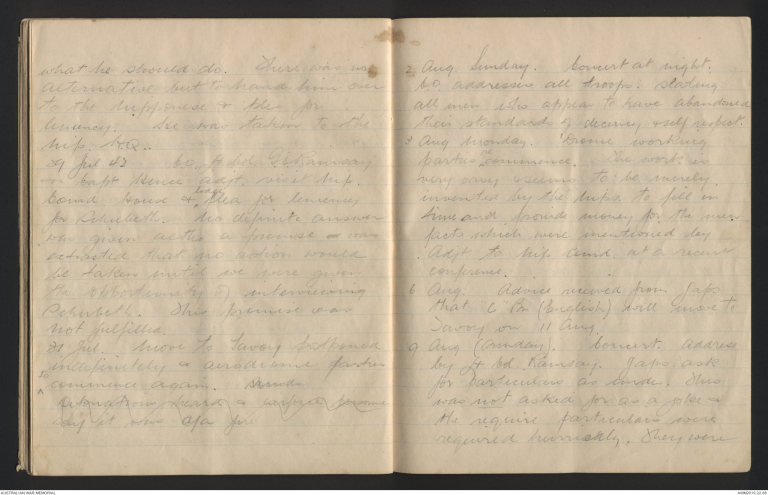 what he should do. There was no
alternative but to hand him over
to the Nipponese & plea for
leniency. He was taken to the
Nip. H.Q.
29 Jul 42 C.O., Lt Col. G.E. Ramsay
Capt Hence adjt. visit Nip.
Comd House & lodge plea for leniency
for Schubeth. No definite answer
was given as the a promise was
extracted that no action would
be taken until we were given
the opportunity of interviewing
Schubeth. This promise was
not fulfilled.
31 Jul. Move to Savoy postponed
indefinitely & aerodrome parties
to commence again.
Detonations heard &
say it was
2 Aug Sunday. Concert at night.
CO addresses all troops. Stating
all men who appear to have abandoned
their standards of decency & self respect.
3 Aug Monday. Drome working
parties recommence. The work is
very easy & seems to be merely
invented by the Nips. to fill in
time and provide money for the men
facts which were mentioned by
Adjt to Nip Comd. at a recent
conference.
6 Aug. Advice received from Japs
that C Bn (English) will move to
Savoy on 11 Aug.
9 Aug (Sunday). Concert. Address
by Lt Col Ramsay. Japs ask
for particulars as under. This
was not asked for as a joke as
the require particulars were
required hurriedly. They were
AUSTRALIAN WAR MEMORIAL